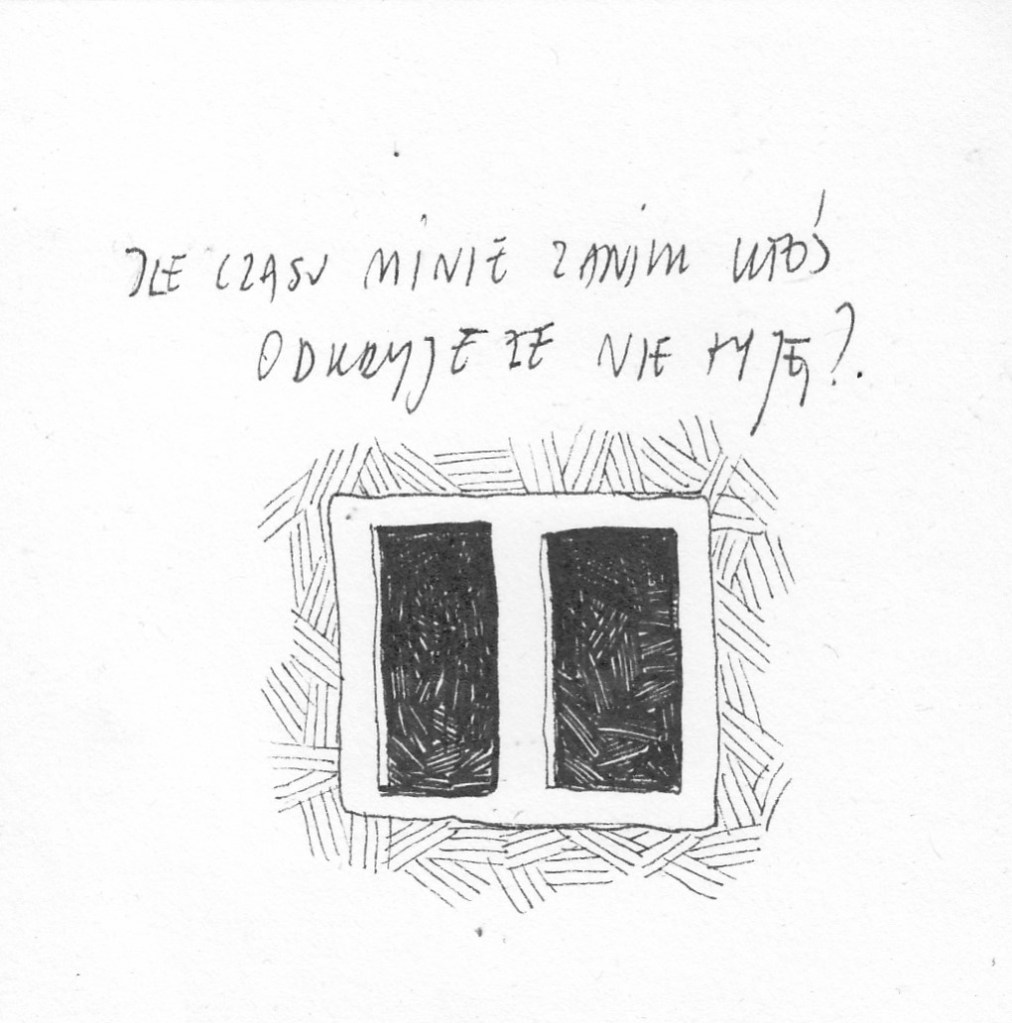 ILE CZASU MINIE ZANIM KTOŚ
ODKRYJE ŻE NIE ŻYJĘ?.